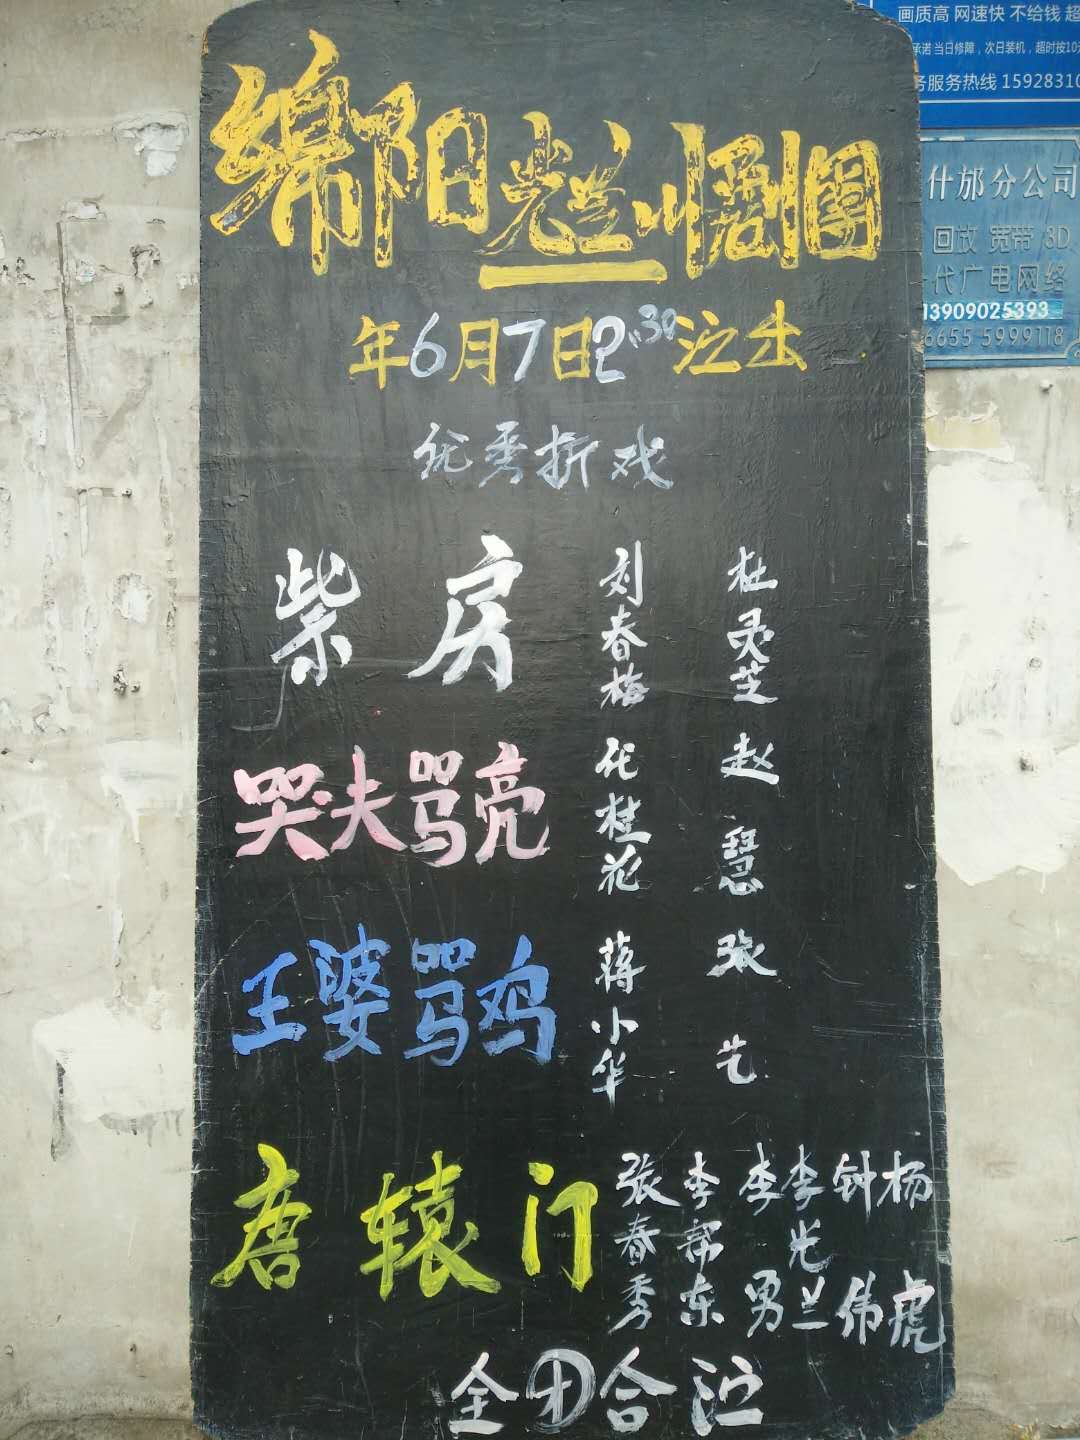 画质高 网速快 不给钱
承诺 当日修障，次日装机，超时按10
务服务热线 15928310
什邡分公司
回放 宽带 3D
代广电网络
13909025393
6655 5999118
绵阳光兰川剧团
年6月7日2:30演出
优秀折戏
柴房 刘春梅 杜灵芝
哭夫骂亮 代桂花 赵慧
王婆骂鸡 蒋小华 张艺
唐辕门 张春秀 李帮东 李勇 李光兰 钟伟 杨虎
全团合演